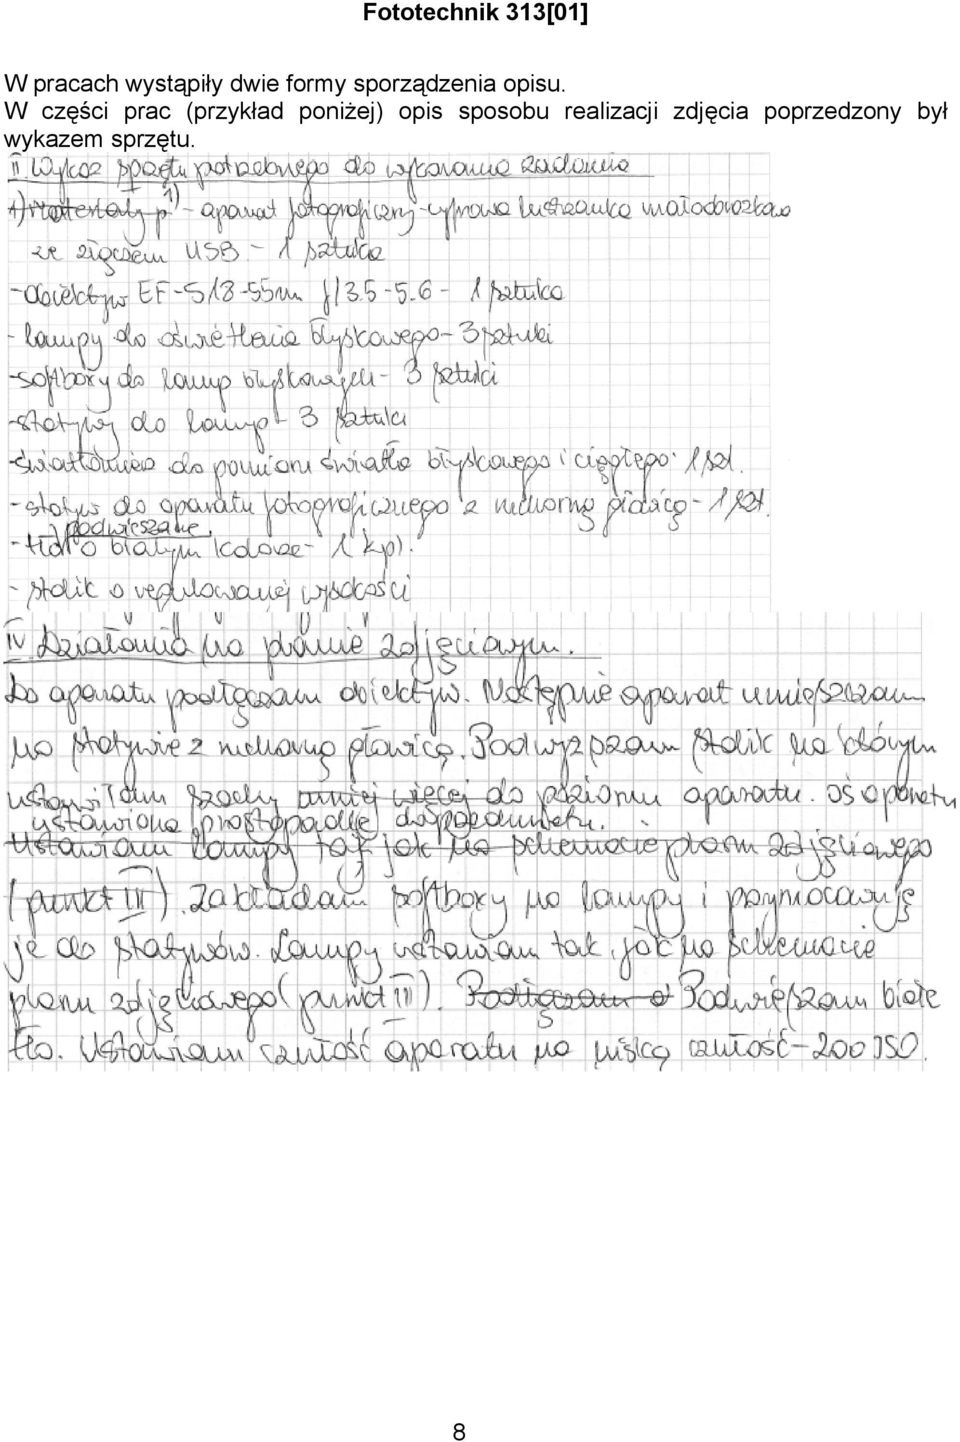 Fototechnik 313[01]
W pracach wystąpiły dwie formy sporządzenia opisu.
W części prac (przykład poniżej) opis sposobu realizacji zdjęcia poprzedzony był
wykazem sprzętu.
II Wykaz sprzętu potrzebnego do wykonania zadania
1) materiały p 1) - aparat fotograficzny - cyfrowa lustrzanka małoobrazkowa
ze złączem USB - 1 sztuka
- obiektyw EF-S 18-55mm f/3.5-5.6 - 1 sztuka
- lampy do oświetlenia błyskowego - 3 sztuki
- softboxy do lamp błyskowych - 3 sztuki
- statywy do lamp - 3 sztuki
- światłomierz do pomiaru światła błyskowego i ciągłego 1 szt.
- statyw do aparatu fotograficznego z ruchomą głowicą - 1 szt.
podwieszane
- tło o białym kolorze - 1 kpl.
- stolik o regulowanej wysokości
IV Działania na planie zdjęciowym.
Do aparatu podłączam obiektyw. Następnie aparat umieszczam
na statywie z ruchomą głowicą. Podwyższam stolik na którym
ustawiłam szachy mniej więcej do poziomu aparatu. Oś aparatu
ustawiona prostopadle do przedmiotu.
Ustawiam lampy tak jak na schemacie planu zdjęciowego
(punkt III). Zakładam softboxy na lampy i przymocowuję
je do statywów. Lampy ustawiam tak, jak na schemacie
planu zdjęciowego (punkt III). Podłączam Podwieszam białe
tło. Ustawiam czułość aparatu na niską czułość - 200 ISO.
8